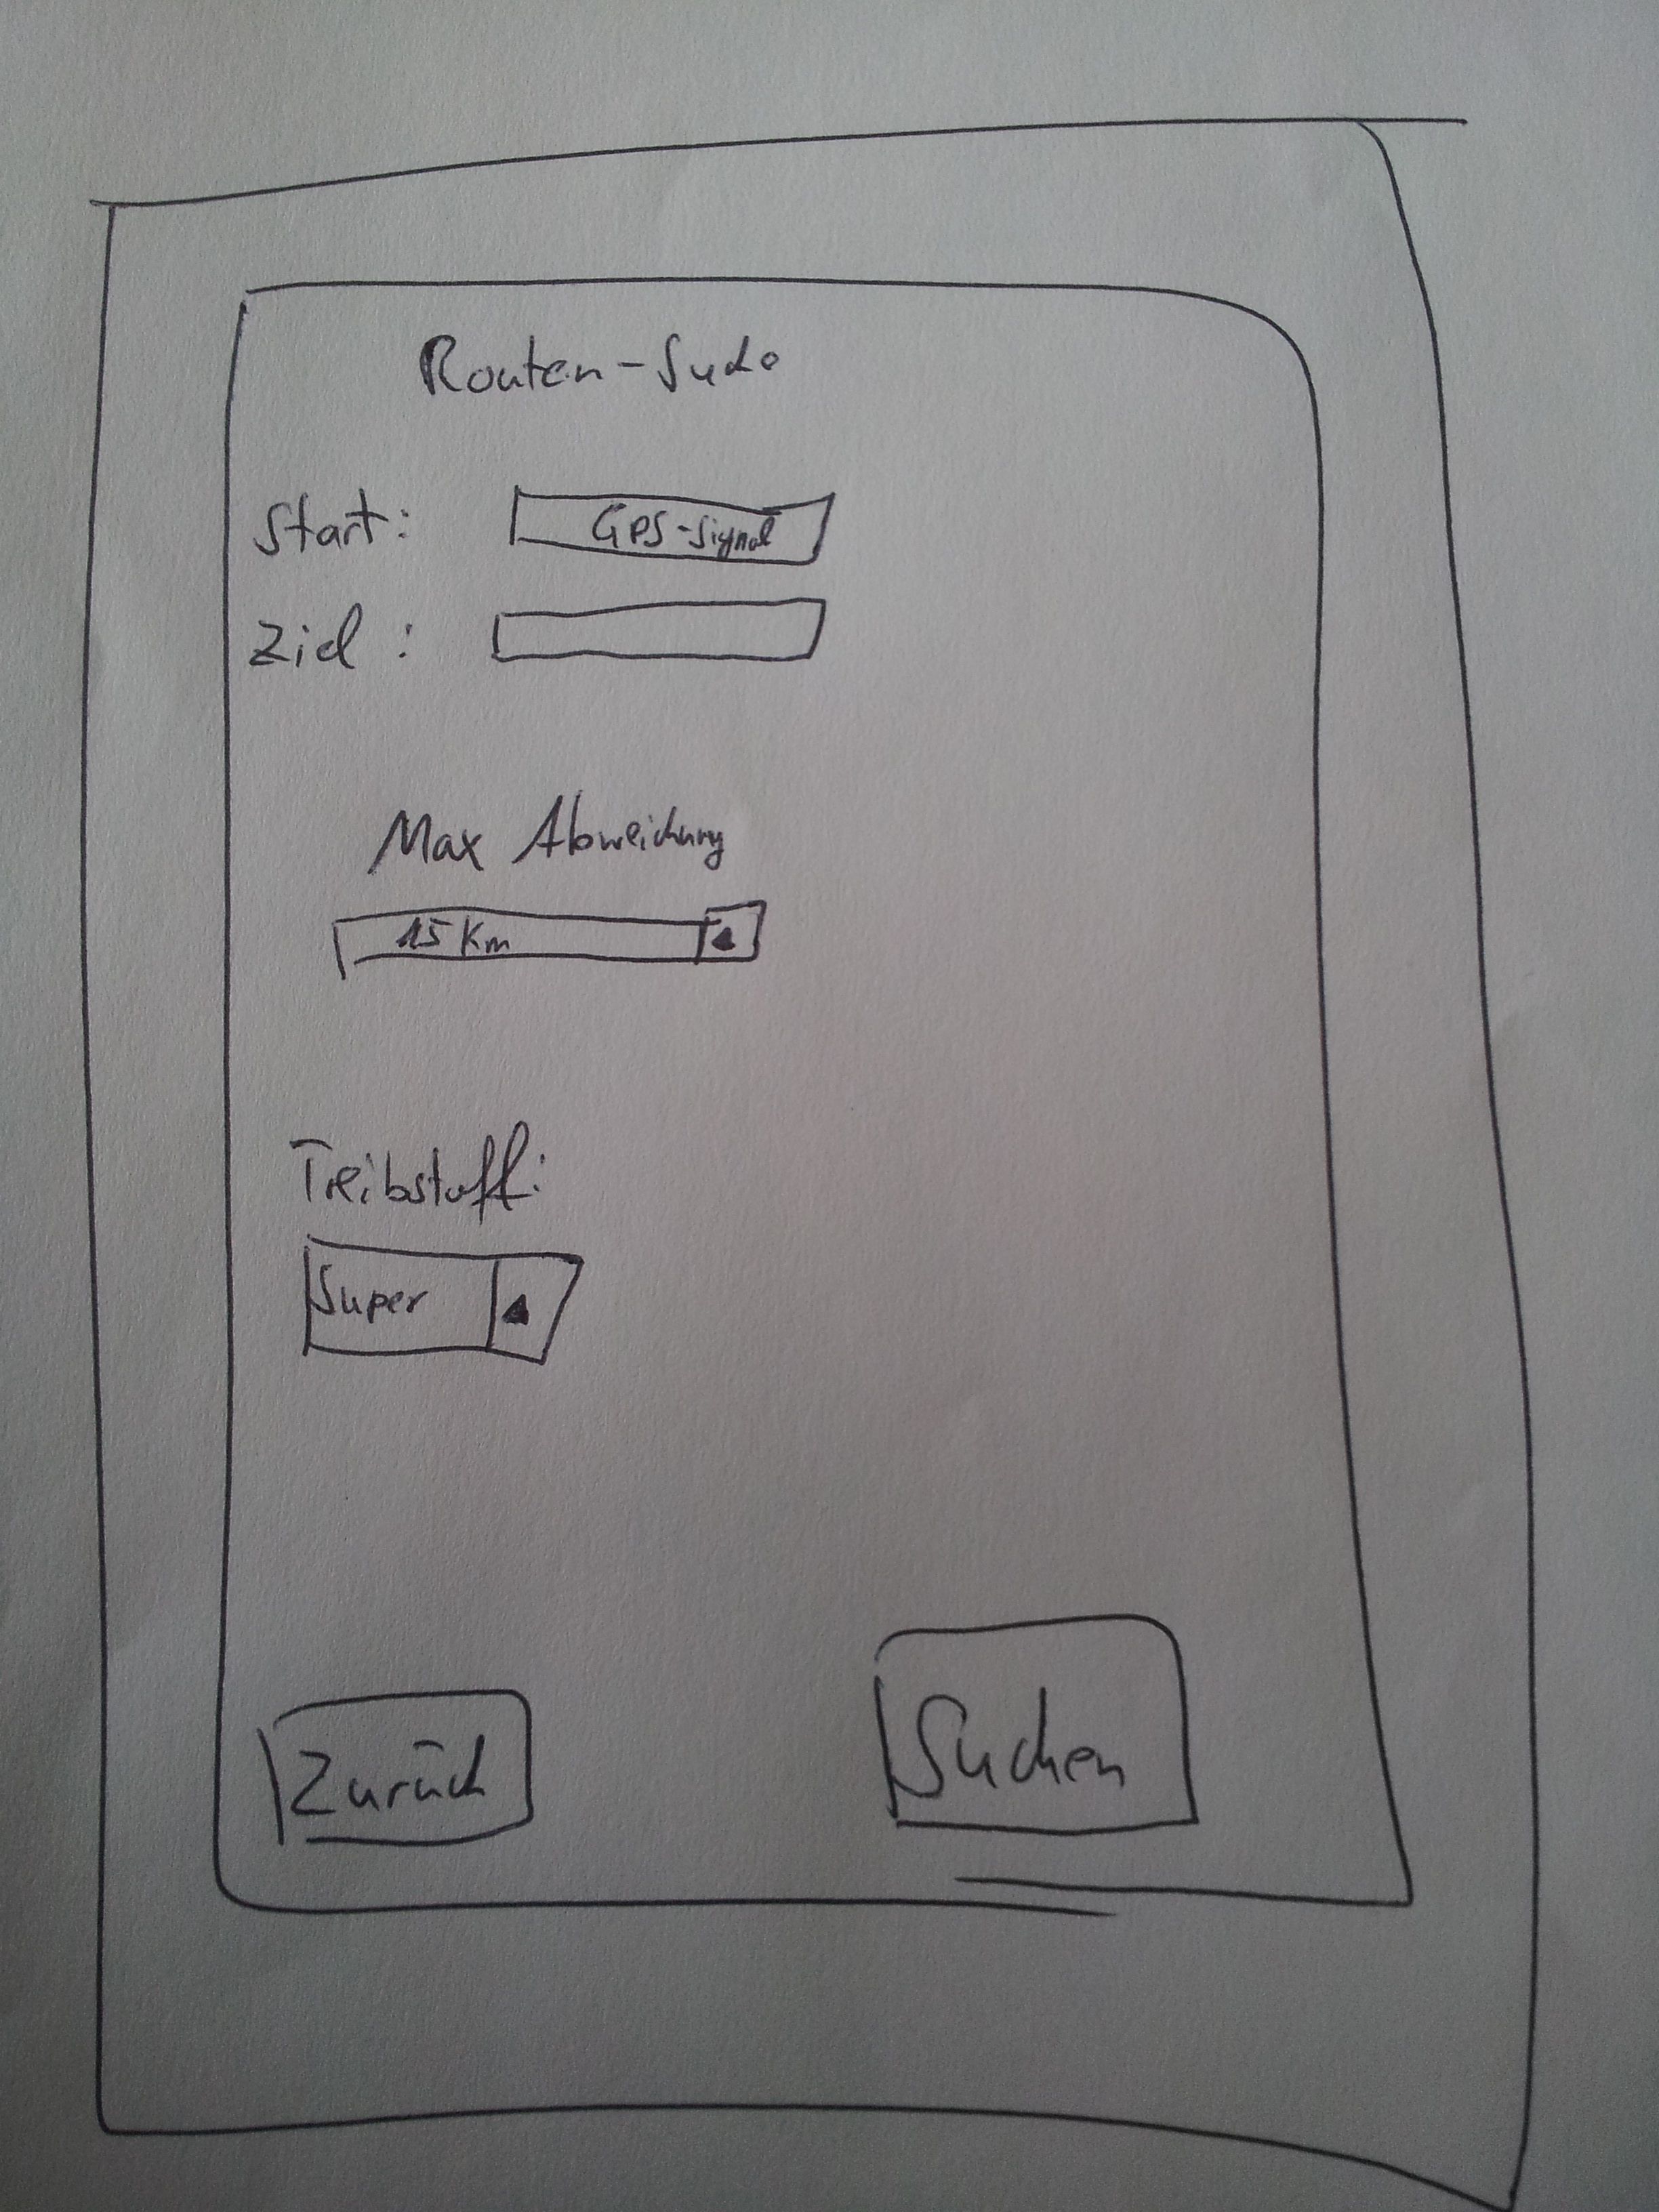 Routen-Suche
Start: GPS-Signal
Ziel :
Max Abweichung
15 Km
Treibstoff:
Super
Zurück
Suchen